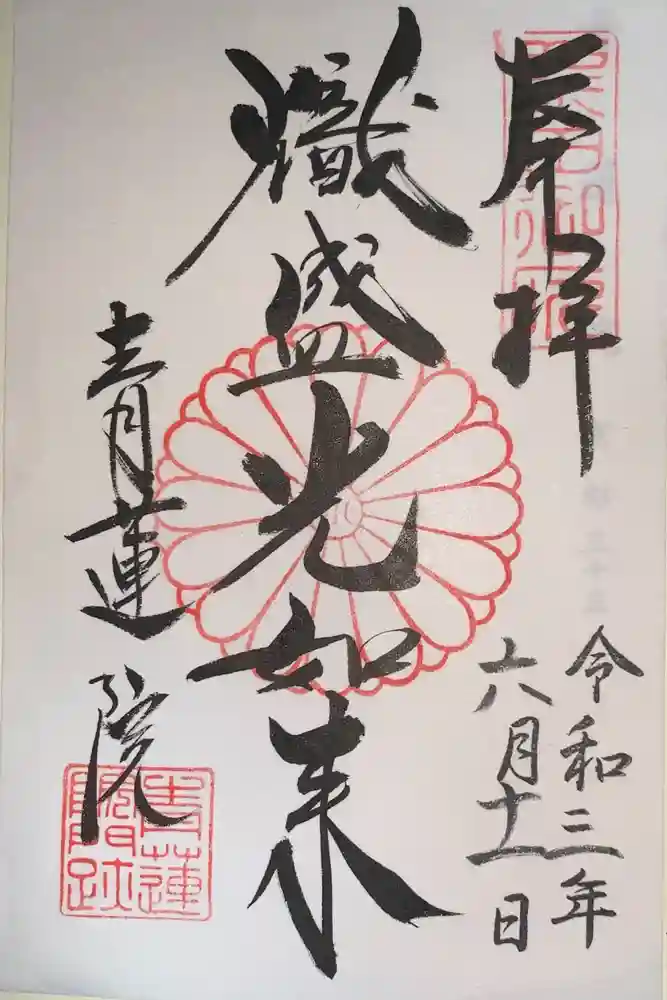 奉拝
令和三年
六月十一日
熾盛光如来
青蓮院
青蓮
院門跡